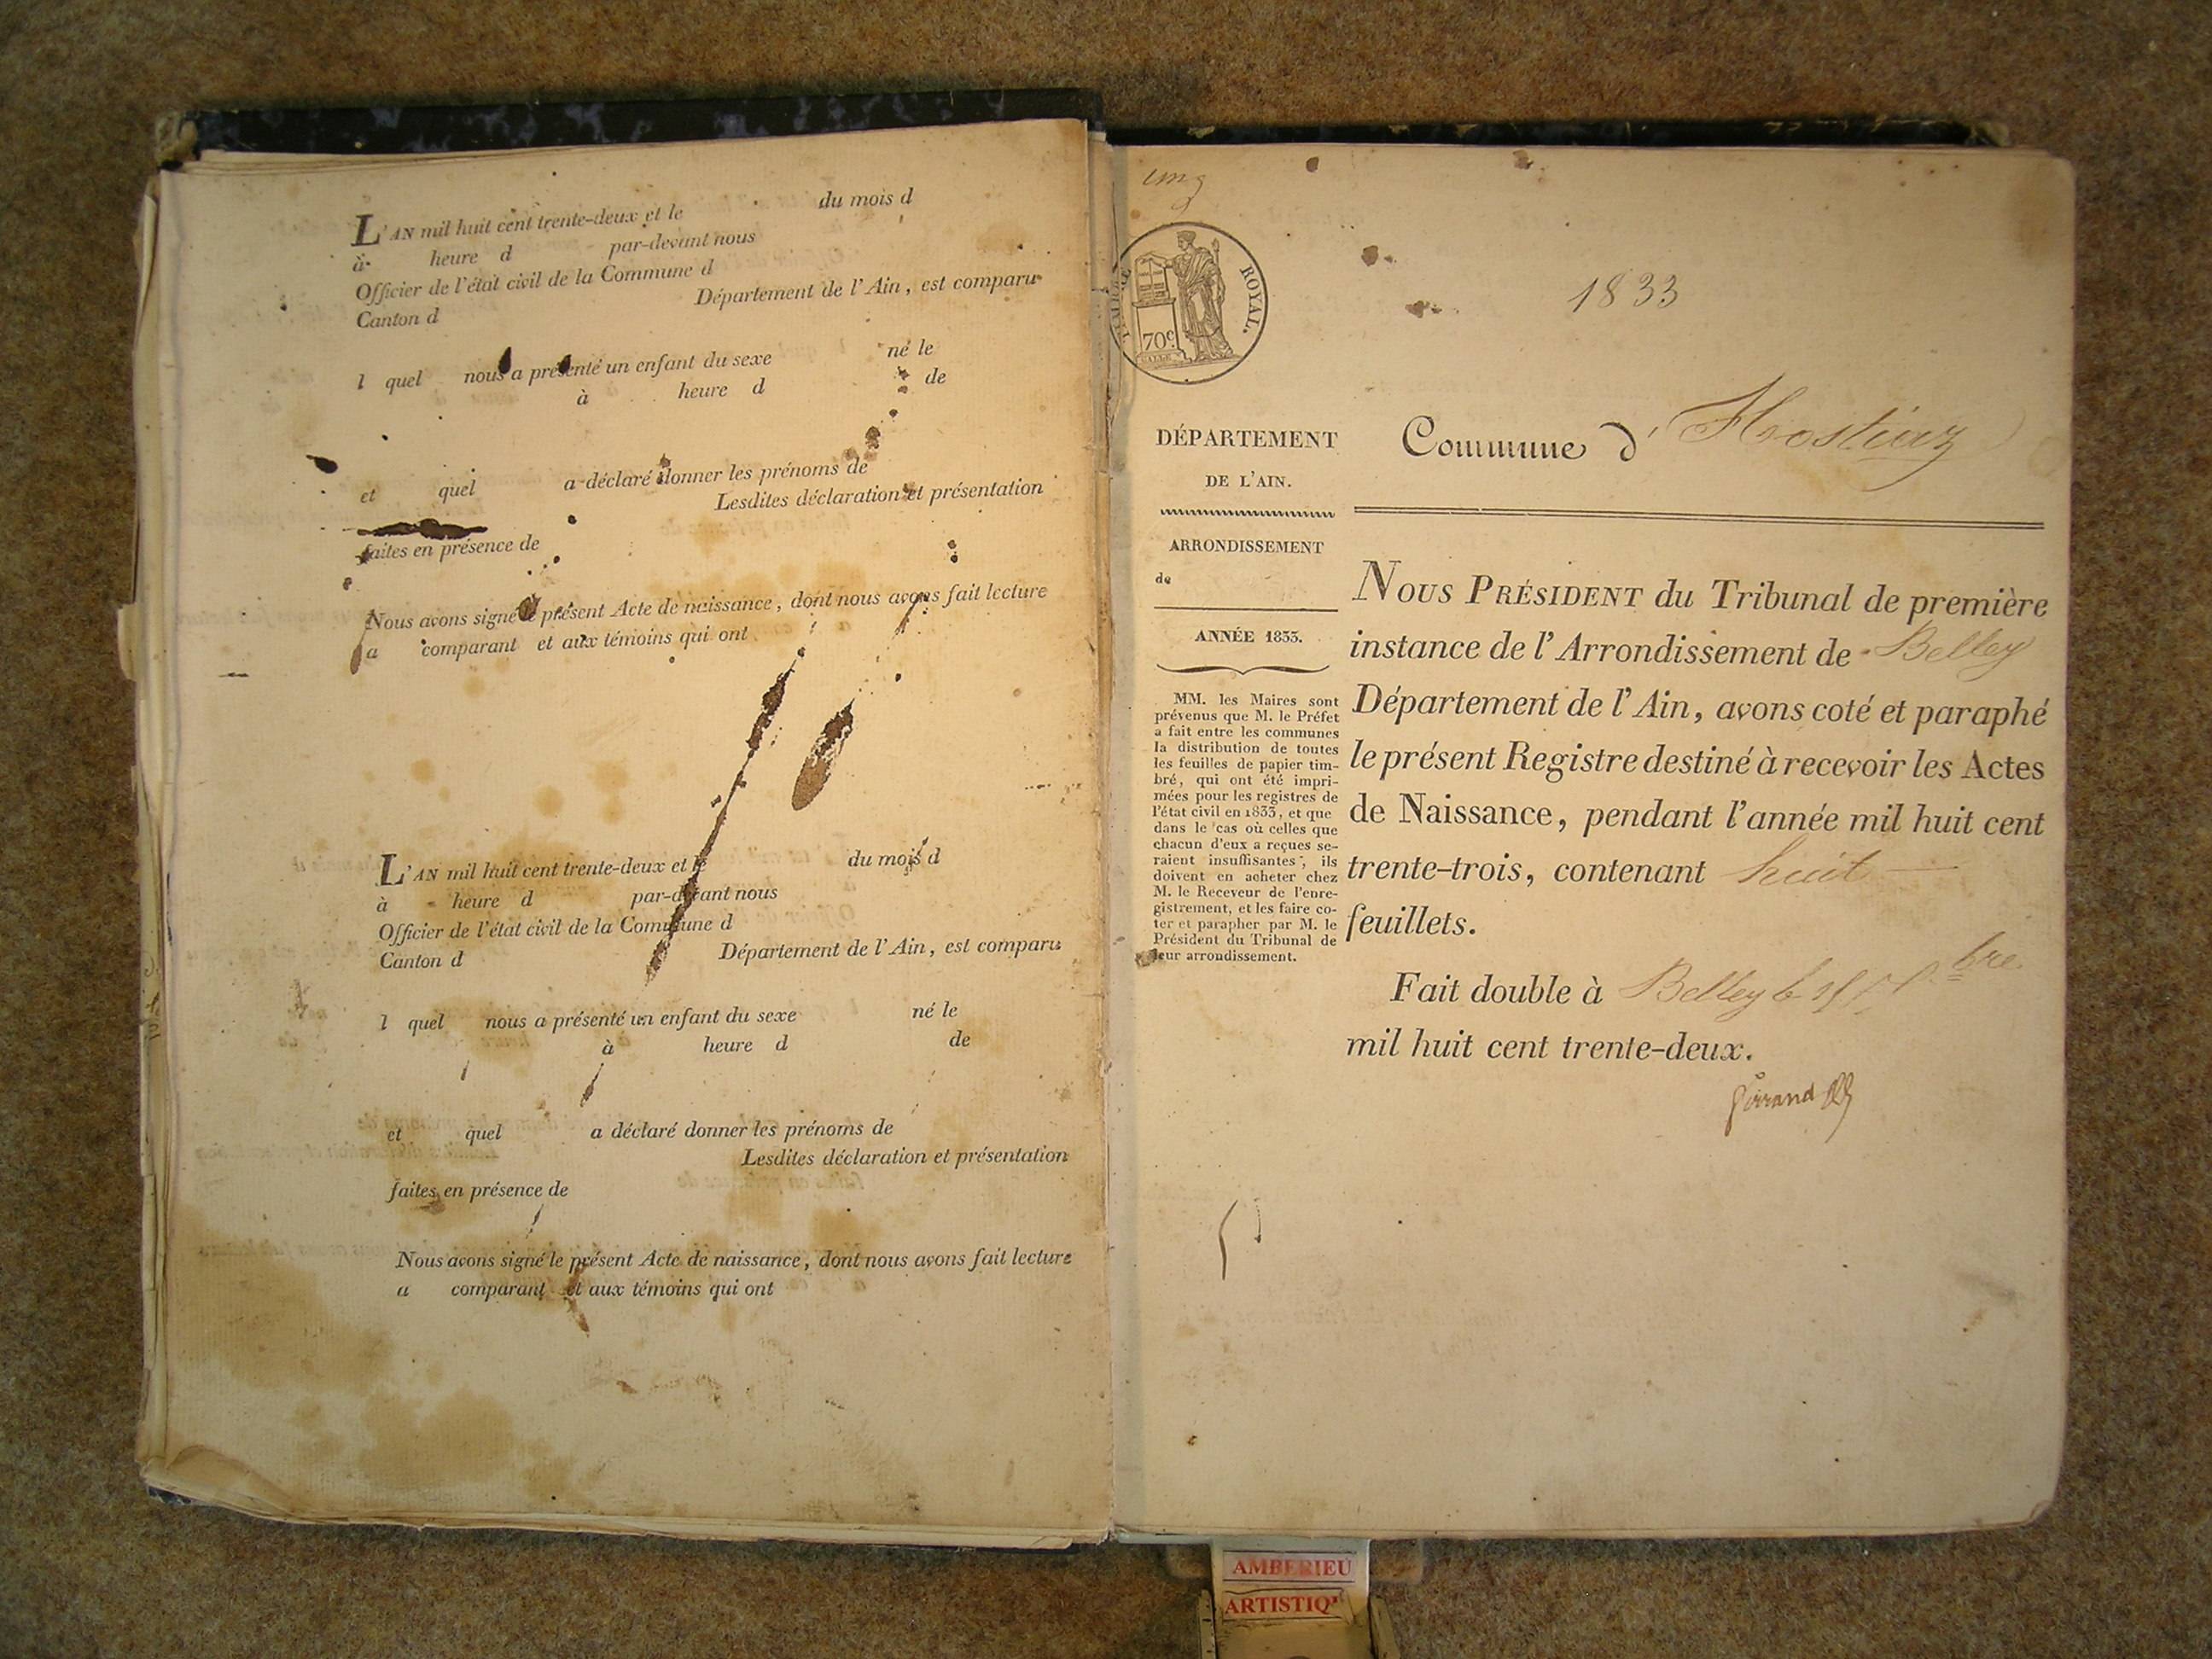 L'AN mil huit cent trente-deux et le du mois d
à heure d par-devant nous
Officier de l'état civil de la Commune d
Canton d Département de l'Ain, est comparu
l quel nous a présenté un enfant du sexe né le
à heure d de
et quel a déclaré donner les prénoms de
Lesdites déclaration et présentation
faites en présence de
Nous avons signé le présent Acte de naissance, dont nous avons fait lecture
a comparant et aux témoins qui ont
L'AN mil huit cent trente-deux et le du mois d
à heure d par-devant nous
Officier de l'état civil de la Commune d
Canton d Département de l'Ain, est comparu
l quel nous a présenté un enfant du sexe né le
à heure d de
et quel a déclaré donner les prénoms de
Lesdites déclaration et présentation
faites en présence de
Nous avons signé le présent Acte de naissance, dont nous avons fait lecture
a comparant et aux témoins qui ont
ROYAL.
70c
1833
Commune d' Hostiaz
DÉPARTEMENT
DE L'AIN.
ARRONDISSEMENT
de
ANNÉE 1833.
MM. les Maires sont
prévenus que M. le Préfet
a fait entre les communes
la distribution de toutes
les feuilles de papier tim-
bré, qui ont été impri-
mées pour les registres de
l'état civil en 1833, et que
dans le cas où celles que
chacun d'eux a reçues se-
raient insuffisantes, ils
doivent en acheter chez
M. le Receveur de l'enre-
gistrement, et les faire co-
ter et parapher par M. le
Président du Tribunal de
leur arrondissement.
NOUS PRÉSIDENT du Tribunal de première
instance de l'Arrondissement de Belley
Département de l'Ain, avons coté et paraphé
le présent Registre destiné à recevoir les Actes
de Naissance, pendant l'année mil huit cent
trente-trois, contenant huit
feuillets.
Fait double à Belley le bre
mil huit cent trente-deux.
AMBERIEU
ARTISTIQ